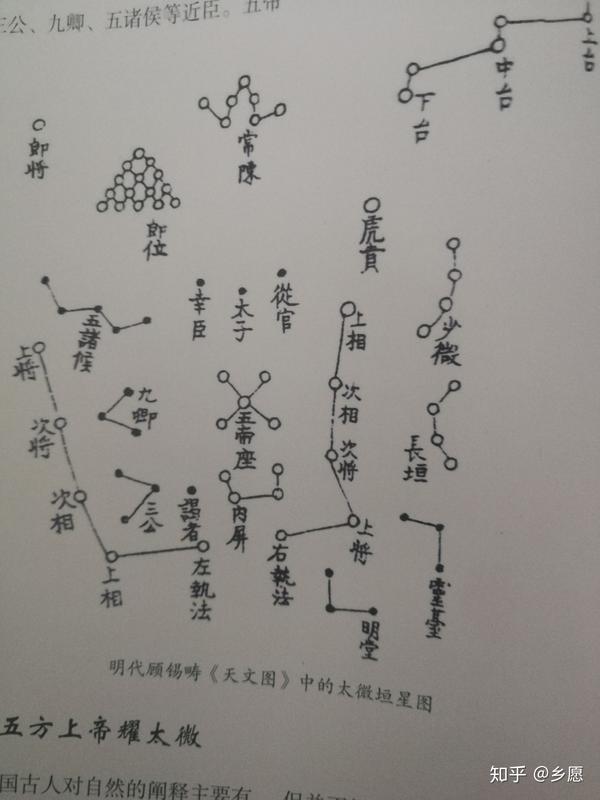 三公、九卿、五诸侯等近臣。五帝
上台
中台
下台
常陳
郎将
郎位
虎賁
少微
五諸侯
幸臣
太子
從官
上相
上将
九卿
五帝座
次相
次将
次将
長垣
次相
三公
謁者
内屏
上将
右執法
上相
左執法
靈臺
明堂
明代顾锡畴《天文图》中的太微垣星图
五方上帝耀太微
国古人对自然的阐释主要有
知乎 @乡愿